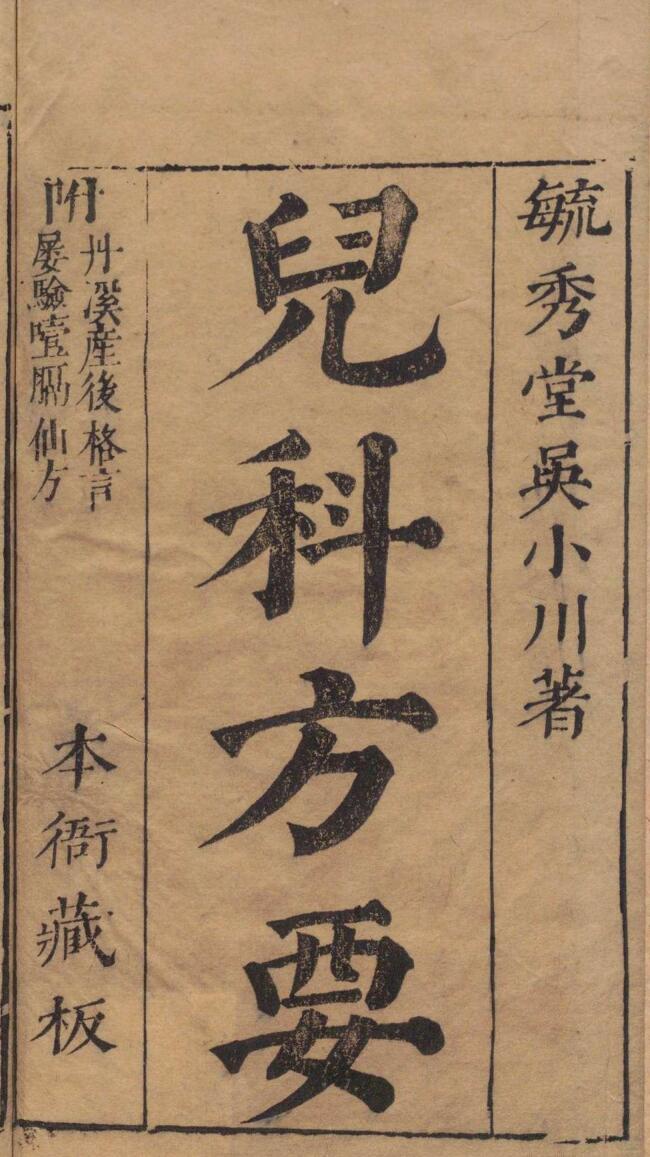 毓秀堂吳小川著
兒科方要
附
丹溪産後格言
屡驗噎膈仙方
本衙藏板